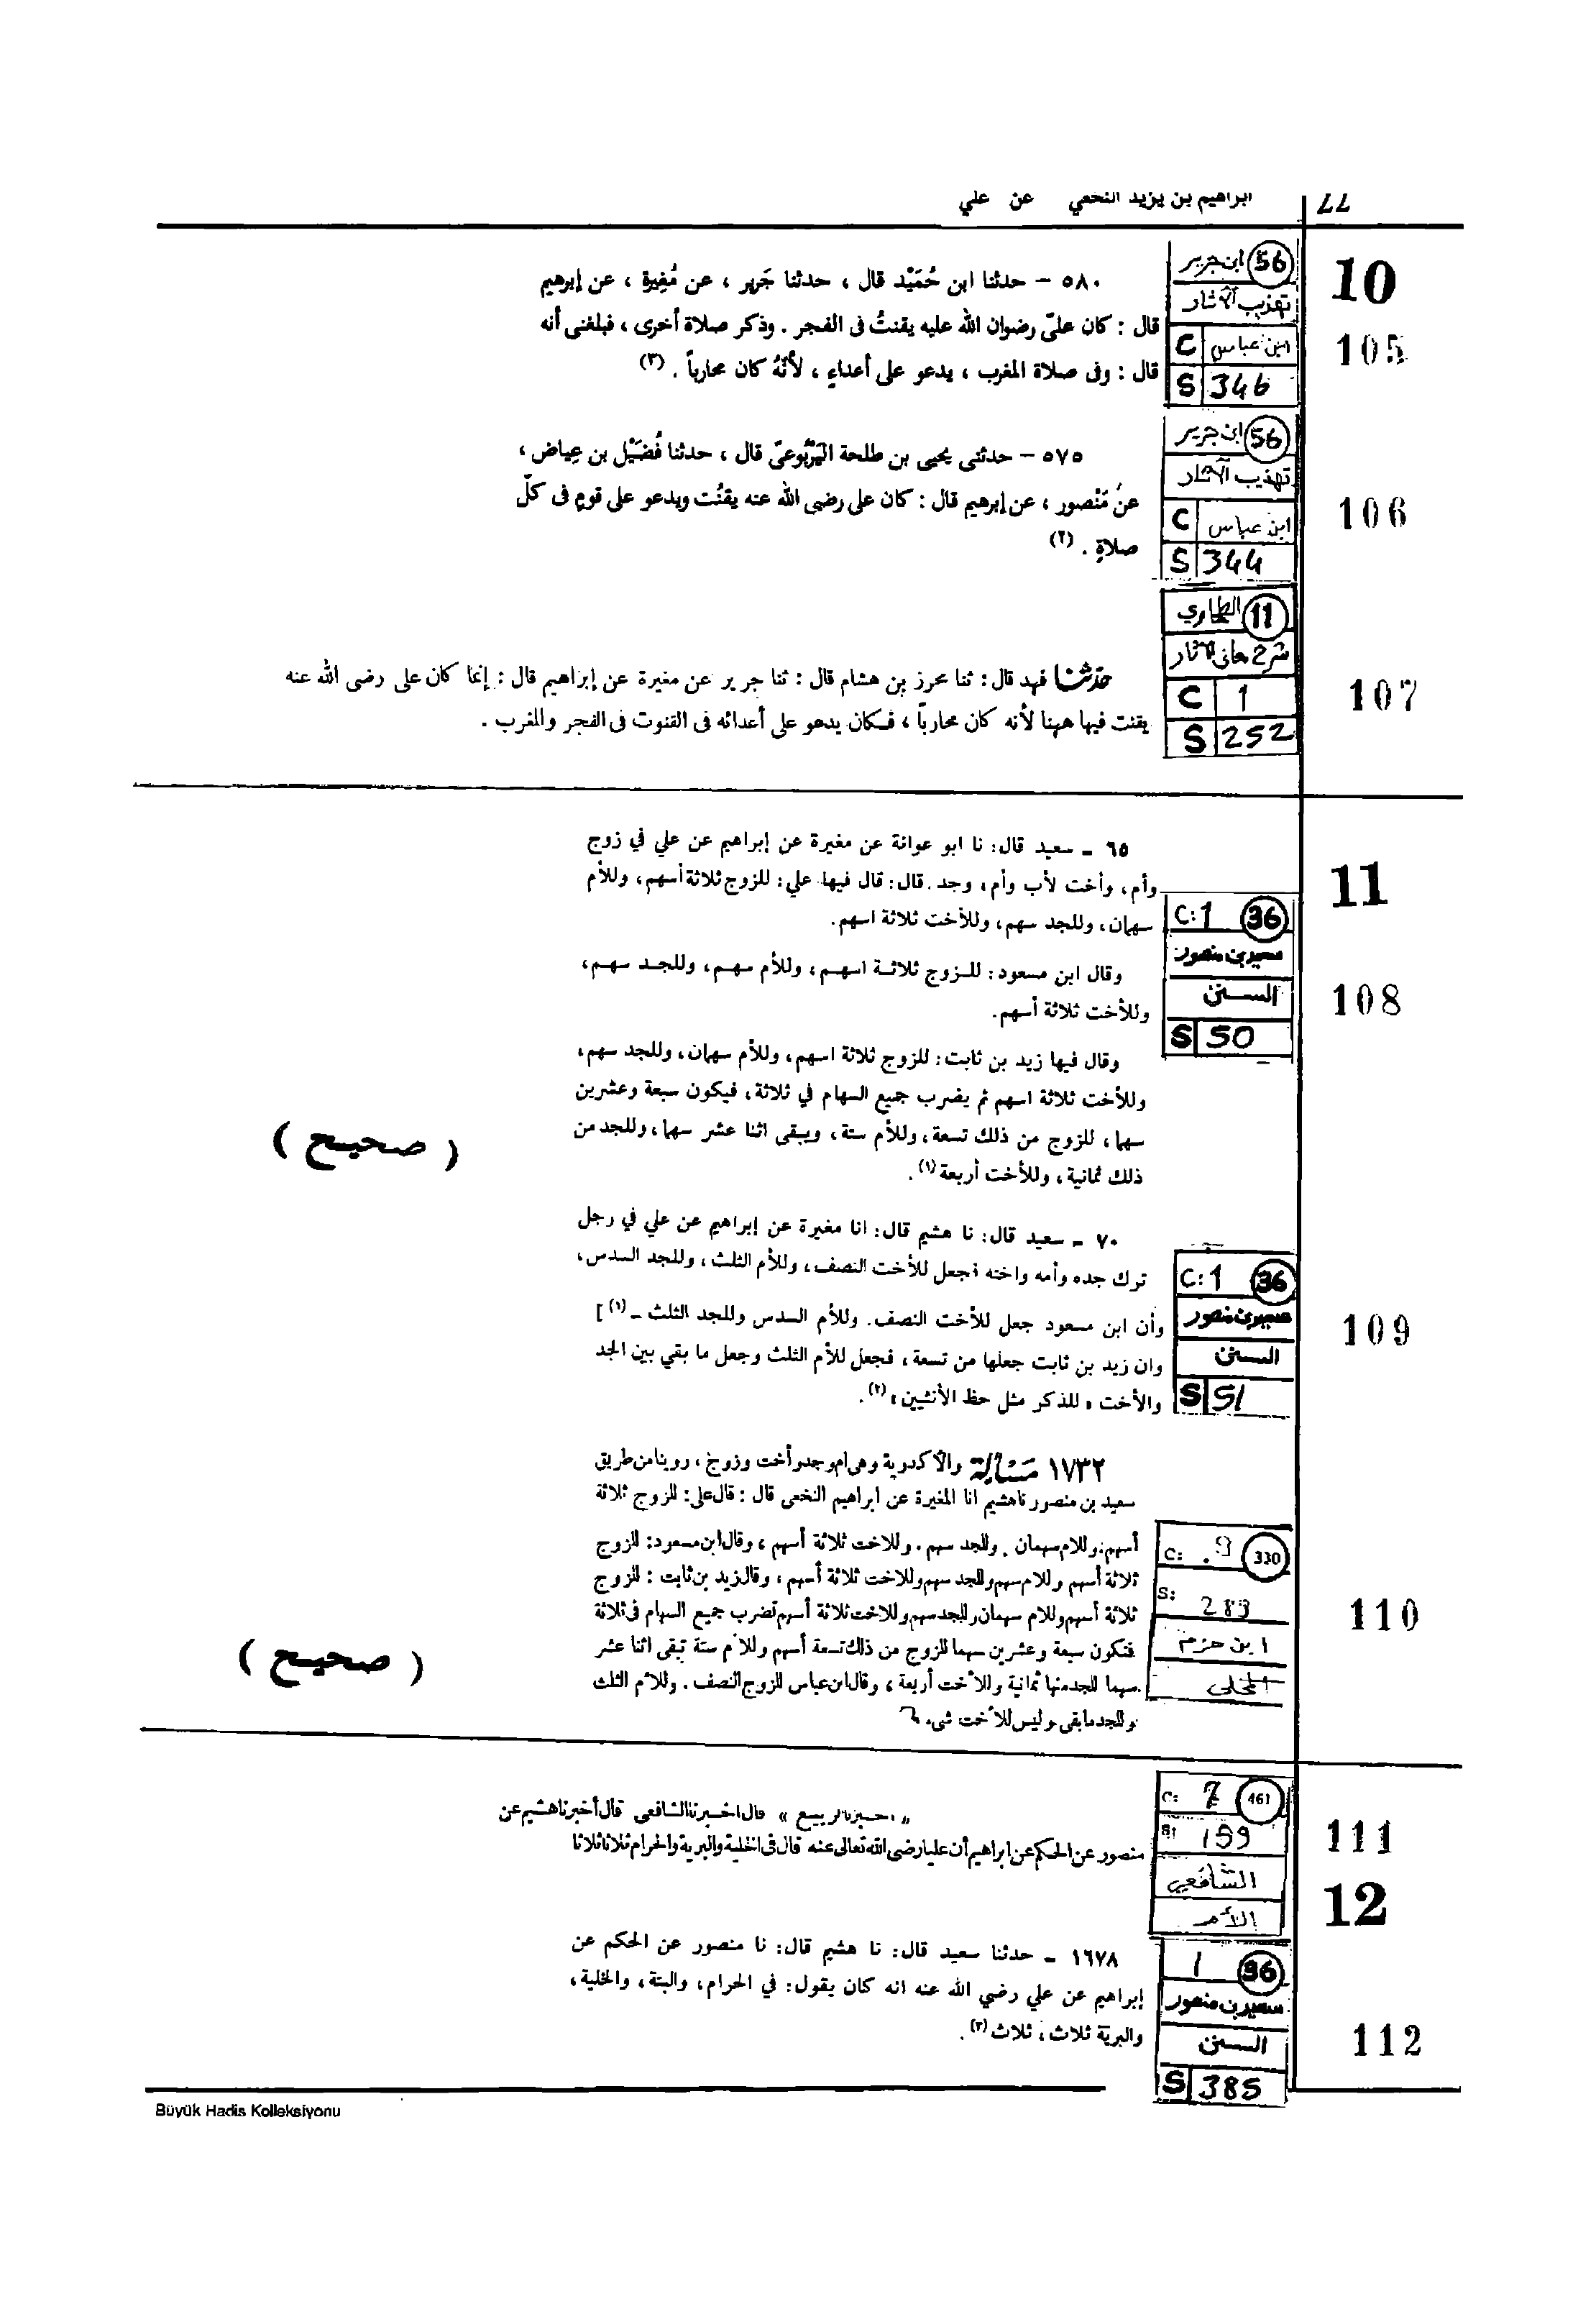 77
ابراهيم بن يزيد النخعي عن علي
10
56 ابن جرير
تهذيب الآثار
C ابن عباس
S 346
105
٥٨٠ – حدثنا ابن حُمَيْد قال ، حدثنا جَرير ، عن مُغِيرة ، عن إبرهيم
قال : كان علىّ رضوان الله عليه يقنتُ فى الفجر . وذكر صلاة أخرى ، فبلغنى أنه
قال : وفى صلاة المغرب ، يدعو على أعداءٍ ، لأنَّهُ كان محارباً . (٣)
56 ابن جرير
تهذيب الآثار
C ابن عباس
S 344
106
٥٧٥ – حدثنى يحيى بن طلحة اليَرْبُوعىّ قال ، حدثنا فُضَيْل بن عِياض ،
عن مَنْصور ، عن إبرهيم قال : كان على رضى الله عنه يقنُت ويدعو على قومٍ فى كلّ
صلاةٍ . (٢)
11 الطحاوي
شرح معاني الآثار
C 1
S 252
107
حدثنا فهد قال : ثنا محرز بن هشام قال : ثنا جرير عن مغيرة عن إبراهيم قال : إنما كان على رضى الله عنه
يقنت فيها ههنا لأنه كان محارباً ، فكان يدعو على أعدائه فى القنوت فى الفجر والمغرب .
11
C:1 36
سعيد بن منصور
السنن
S 50
108
٦٥ – سعيد قال: نا ابو عوانة عن مغيرة عن إبراهيم عن علي في زوج
وأم، وأخت لأب وأم، وجد. قال: قال فيها علي: للزوج ثلاثة أسهم، وللأم
سهمان، وللجد سهم، وللأخت ثلاثة اسهم.
وقال ابن مسعود: للزوج ثلاثة اسهم، وللأم سهم، وللجد سهم،
وللأخت ثلاثة أسهم.
وقال فيها زيد بن ثابت: للزوج ثلاثة اسهم، وللأم سهمان، وللجد سهم،
وللأخت ثلاثة اسهم ثم يضرب جميع السهام في ثلاثة، فيكون سبعة وعشرين
سهما، للزوج من ذلك تسعة، وللأم ستة، ويبقى اثنا عشر سهما، وللجد من
ذلك ثمانية، وللأخت أربعة (١).
( صحيح )
C:1 36
سعيد بن منصور
السنن
S 51
109
٧٠ – سعيد قال: نا هشيم قال: انا مغيرة عن إبراهيم عن علي في رجل
ترك جده وأمه واخته فجعل للأخت النصف، وللأم الثلث، وللجد السدس،
وأن ابن مسعود جعل للأخت النصف. وللأم السدس وللجد الثلث – (١) ]
وان زيد بن ثابت جعلها من تسعة، فجعل للأم الثلث وجعل ما بقي بين الجد
والأخت «للذكر مثل حظ الأنثيين» (٢).
C: 9 330
S: 283
ابن حزم
المحلى
110
١٧٣٢ مسألة والأكدرية وهى ام وجد وأخت وزوج ، روينا من طريق
سعيد بن منصور نا هشيم انا المغيرة عن ابراهيم النخعى قال : قال على: للزوج ثلاثة
أسهم. وللام سهمان . وللجد سهم . وللاخت ثلاثة أسهم ، وقال ابن مسعود: للزوج
ثلاثة أسهم وللام سهم وللجد سهم وللاخت ثلاثة أسهم ، وقال زيد بن ثابت : للزوج
ثلاثة أسهم وللام سهمان وللجد سهم وللاخت ثلاثة أسهم تضرب جميع السهام فى ثلاثة
فتكون سبعة وعشرين سهما للزوج من ذلك تسعة أسهم وللام ستة تبقى اثنا عشر
سهما للجد منها ثمانية وللأخت أربعة ، وقال ابن عباس للزوج النصف . وللأم الثلث
وللجد ما بقى وليس للأخت شىء.
( صحيح )
C: 7 461
S: 159
الشافعي
الأم
111
12
« اخبرنا الربيع » قال اخبرنا الشافعى قال أخبرنا هشيم عن
منصور عن الحكم عن ابراهيم أن عليا رضى الله تعالى عنه قال فى الخلية والبرية والحرام ثلاثا ثلاثا
1 36
سعيد بن منصور
السنن
S 385
112
١٦٧٨ – حدثنا سعيد قال: نا هشيم قال: نا منصور عن الحكم عن
إبراهيم عن علي رضي الله عنه انه كان يقول: في الحرام، والبتة، والخلية،
والبرية ثلاث، ثلاث (٣).
Büyük Hadis Kolleksiyonu